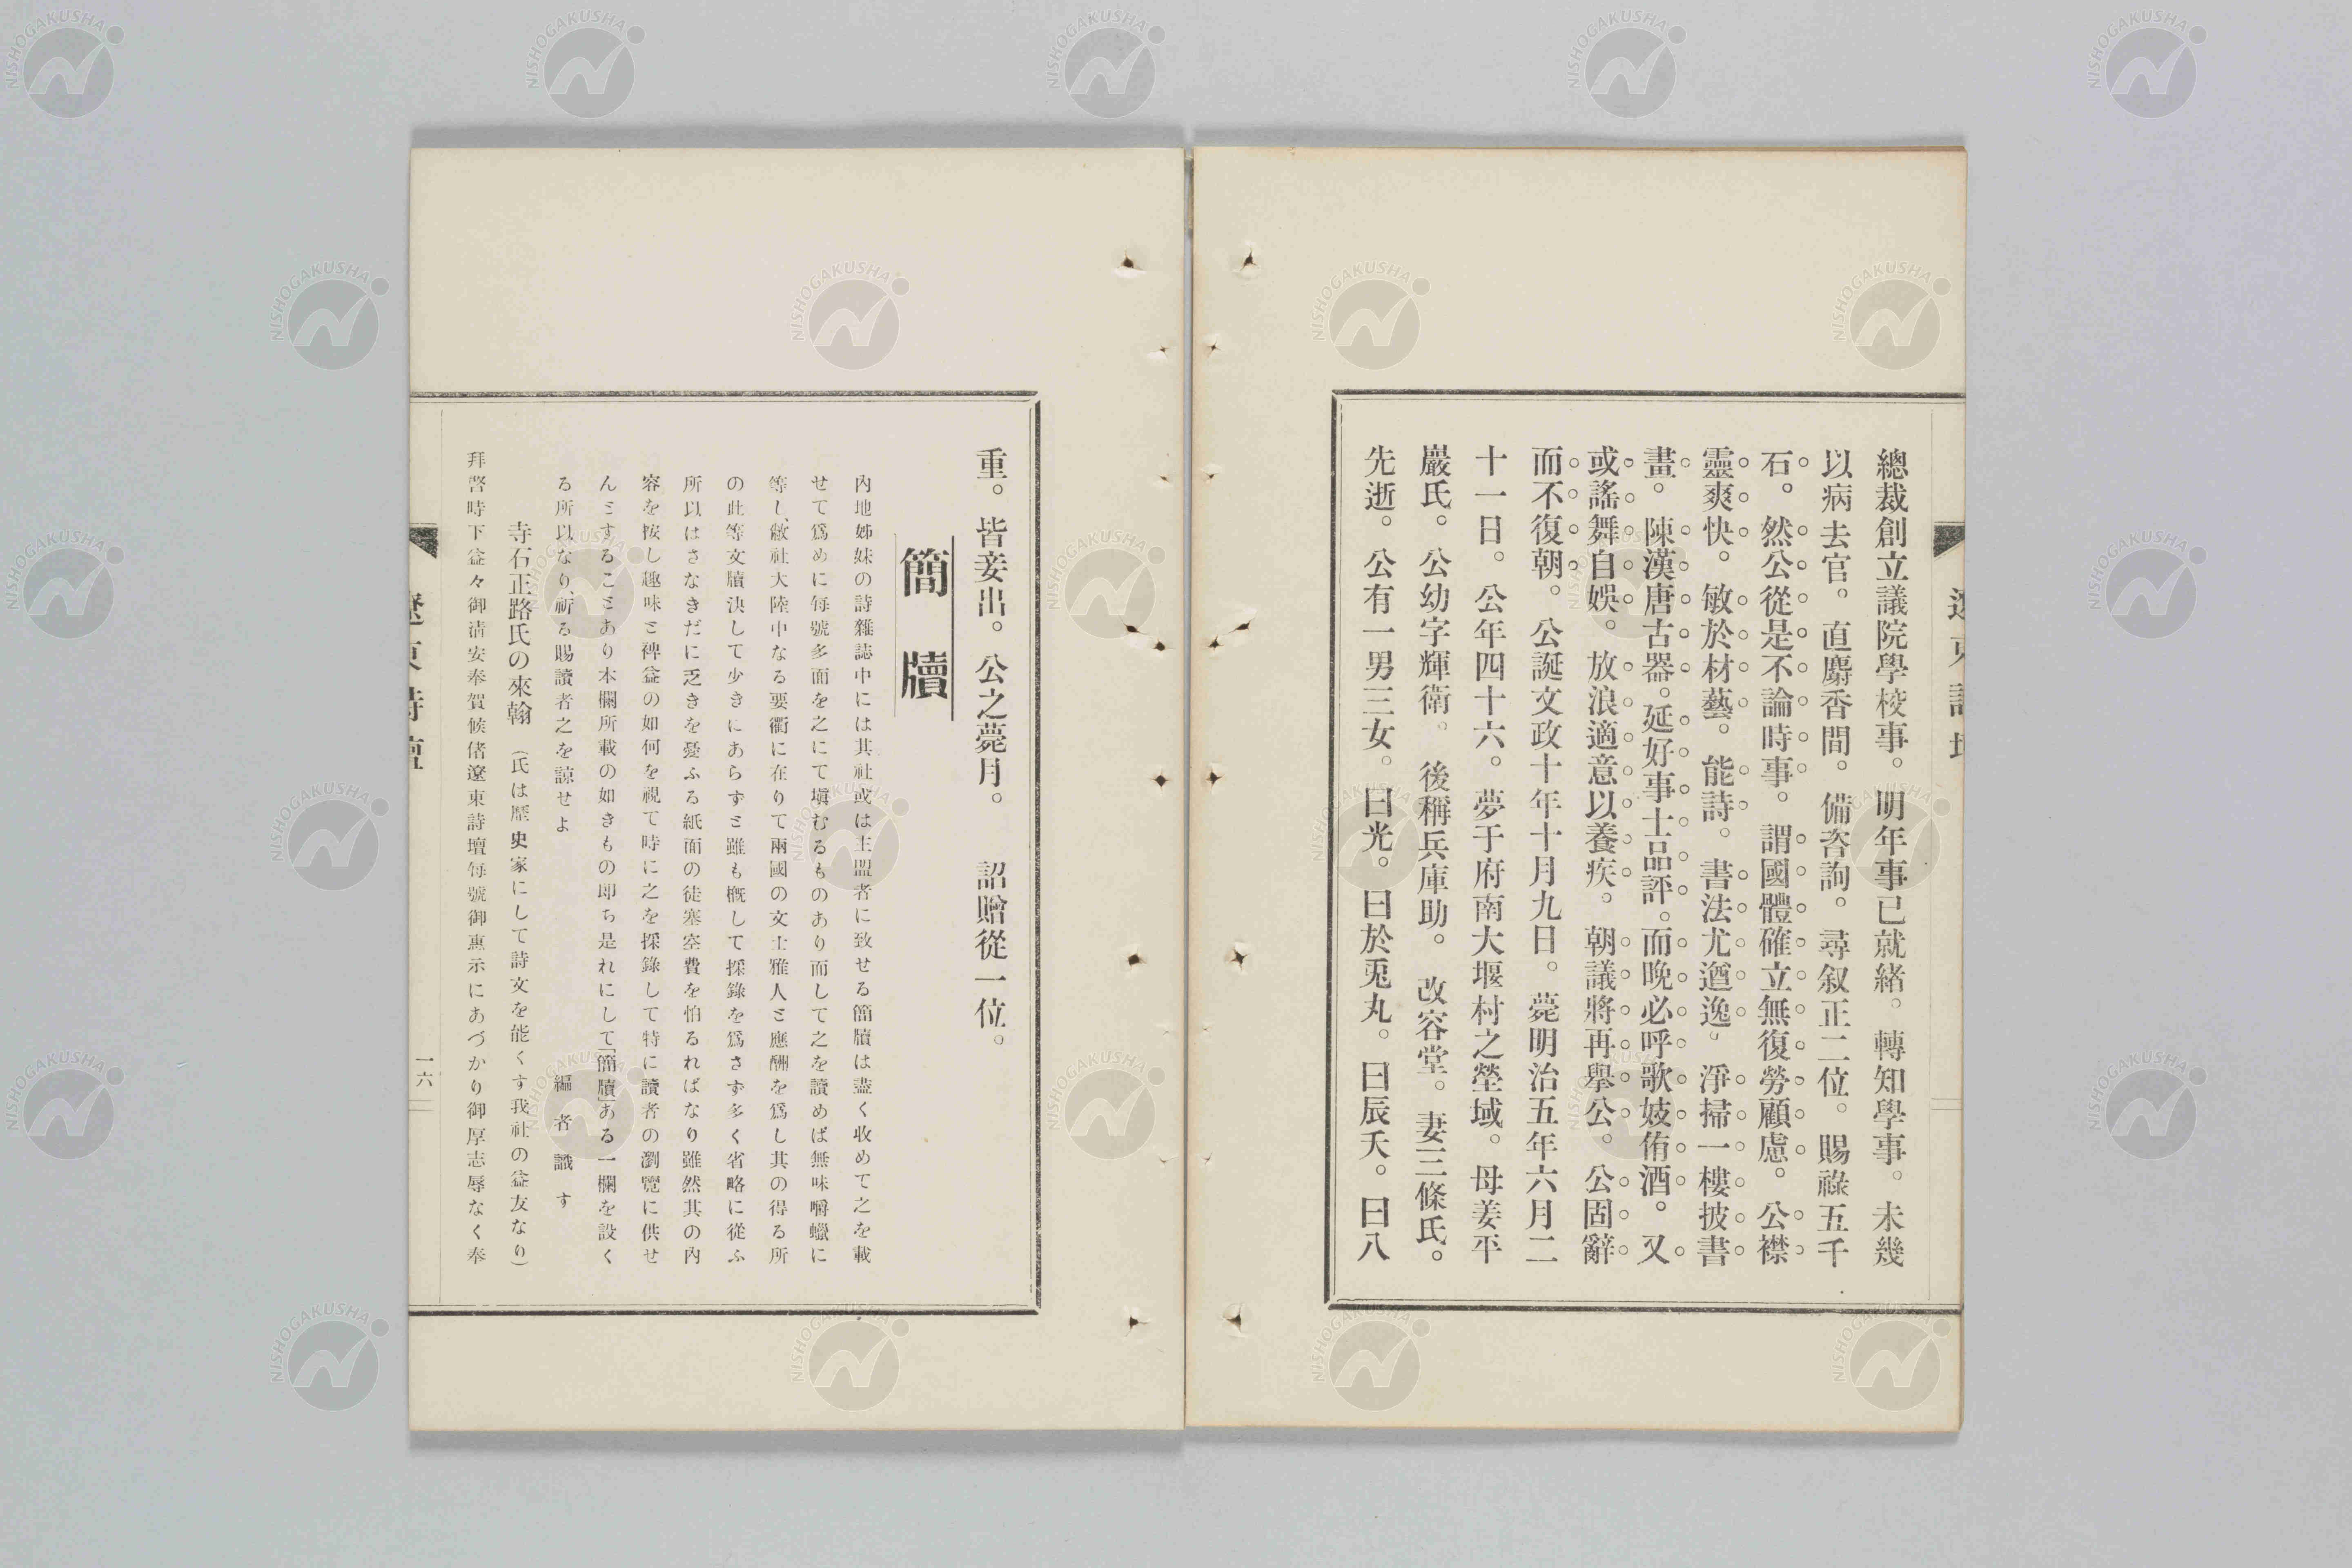 總裁創立議院學校事。明年事已就緒。轉知學事。未幾
以病去官。直麝香間。備咨詢。尋叙正二位。賜祿五千
石。然公從是不論時事。謂國體確立無復勞顧慮。公襟
靈爽快。敏於材藝。能詩。書法尤遒逸。淨掃一樓披書
畫。陳漢唐古器。延好事士品評。而晚必呼歌妓侑酒。又
或謠舞自娛。放浪適意以養疾。朝議將再擧公。公固辭
而不復朝。公誕文政十年十月九日。薨明治五年六月二
十一日。公年四十六。夢于府南大堰村之塋域。母姜平
嚴氏。公幼字輝衛。後稱兵庫助。改容堂。妻三條氏。
先逝。公有一男三女。曰光。曰於兎丸。曰辰夭。曰八
重。皆妾出。公之薨月。詔贈從一位。
簡牘
內地姊妹の詩雜誌中には其社或は主盟者に致せる簡牘は盡く收めて之を載
せて爲めに每號多面を之にて塡むるものあり而して之を讀めば無味嚼蠟に
等し、敝社大陸中なる要衢に在りて兩國の文士雅人と應酬を爲し其の得る所
の此等文牘決して少きにあらずと雖も槪して採錄を爲さず多く省略に從ふ
所以はさなきだに乏きを憂ふる紙面の徒塞空費を怕るればなり雖然其の內
容を按し趣味と裨益の如何を視て時に之を採錄して特に讀者の瀏覽に供せ
んとすることあり本欄所載の如きもの卽ち是れにして「簡牘」ある一欄を設く
る所以なり、祈る賜讀者之を諒せよ
編者識す
寺石正路氏の來翰 (氏は歷史家にして詩文を能くす我社の益友なり)
拜啓時下益々御淸安奉賀候偖遼東詩壇每號御惠示にあづかり御厚志辱なく奉
遼東詩壇
一六